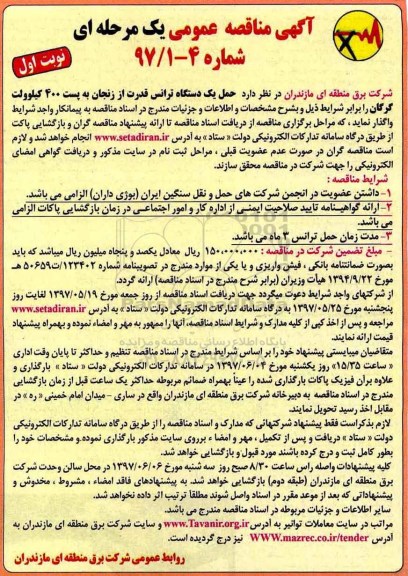 آگهی مناقصه عمومی یک مرحله ای
شماره ۴-۹۷/۱
نوبت اول
شرکت برق منطقه ای مازندران در نظر دارد حمل یک دستگاه ترانس قدرت از زنجان به پست ۴۰۰ کیلوولت
گرگان را برابر شرایط ذیل و بشرح مشخصات و اطلاعات و جزئیات مندرج در اسناد مناقصه به پیمانکار واجد شرایط
واگذار نماید ، که مراحل برگزاری مناقصه از دریافت اسناد مناقصه تا ارائه پیشنهاد مناقصه گران و بازگشایی پاکت
از طریق درگاه سامانه تدارکات الکترونیکی دولت « ستاد » به آدرس www.setadiran.ir انجام خواهد شد و لازم
است مناقصه گران در صورت عدم عضویت قبلی ، مراحل ثبت نام در سایت مذکور و دریافت گواهی امضای
الکترونیکی را جهت شرکت در مناقصه محقق سازند.
شرایط مناقصه :
۱- داشتن عضویت در انجمن شرکت های حمل و نقل سنگین ایران (بوژی داران) الزامی می باشد.
۲- ارائه گواهینامه تایید صلاحیت ایمنی از اداره کار و امور اجتماعی در زمان بازگشایی پاکات الزامی
می باشد.
۳- مدت زمان حمل ترانس ۳ ماه می باشد.
مبلغ تضمین شرکت در مناقصه : ۱۵۰,۰۰۰,۰۰۰ ریال معادل یکصد و پنجاه میلیون ریال میباشد که باید
بصورت ضمانتنامه بانکی ، فیش واریزی و یا یکی از موارد مندرج در تصویبنامه شماره ۱۲۳۴۰۲/ت۵۰۶۵۹ هـ
مورخ ۱۳۹۴/۹/۲۲ هیأت وزیران (برابر شرح مندرج در اسناد مناقصه) ارائه گردد.
از شرکتهای واجد شرایط دعوت میگردد جهت دریافت اسناد مناقصه از روز جمعه مورخ ۱۳۹۷/۰۵/۱۹ لغایت روز
پنجشنبه مورخ ۱۳۹۷/۰۵/۲۵ به درگاه سامانه تدارکات الکترونیکی دولت « ستاد » به آدرس www.setadiran.ir
مراجعه و پس از اخذ کپی از کلیه مدارک و شرایط اسناد مناقصه، آنها را ممهور به مهر و امضاء نموده و بهمراه پیشنهاد
قیمت ارائه نمایند.
متقاضیان میبایستی پیشنهاد خود را بر اساس شرایط مندرج در اسناد مناقصه تنظیم و حداکثر تا پایان وقت اداری
« ساعت ۱۵/۳۵ » روز یکشنبه مورخ ۱۳۹۷/۰۶/۰۴ در سامانه تدارکات الکترونیکی دولت « ستاد » بارگذاری و
علاوه بر آن فیزیک پاکات بارگذاری شده را عیناً بهمراه ضمائم مربوطه حداکثر یک ساعت قبل از زمان بازگشایی
مندرج در اسناد مناقصه به دبیرخانه شرکت برق منطقه ای مازندران واقع در ساری – میدان امام خمینی « ره » در
مقابل اخذ رسید تحویل نمایند.
لازم بذکر است فقط پیشنهاد شرکتهائی که مدارک و اسناد مناقصه را از طریق درگاه سامانه تدارکات الکترونیکی
دولت « ستاد » دریافت و پس از تکمیل ، مهر و امضاء بر روی سایت مذکور بارگذاری نموده و مشخصات خود را
بطور کامل ثبت و درج کرده باشند مورد قبول و بازگشایی خواهد شد.
کلیه پیشنهادات واصله راس ساعت ۸/۳۰ صبح روز سه شنبه مورخ ۱۳۹۷/۰۶/۰۶ در محل سالن وحدت شرکت
برق منطقه ای مازندران (طبقه دوم) بازگشایی خواهد شد. به پیشنهادهای فاقد امضاء ، مشروط ، مخدوش و
پیشنهاداتی که بعد از موعد مقرر در اسناد واصل شوند مطلقاً ترتیب اثر داده نخواهد شد.
سایر اطلاعات و جزئیات مربوطه در اسناد مناقصه مندرج می باشد.
مراتب در سایت معاملات توانیر به آدرس www.Tavanir.org.ir و سایت شرکت برق منطقه ای مازندران به
آدرس WWW.mazrec.co.ir/tender نیز درج گردیده است.
روابط عمومی شرکت برق منطقه ای مازندران